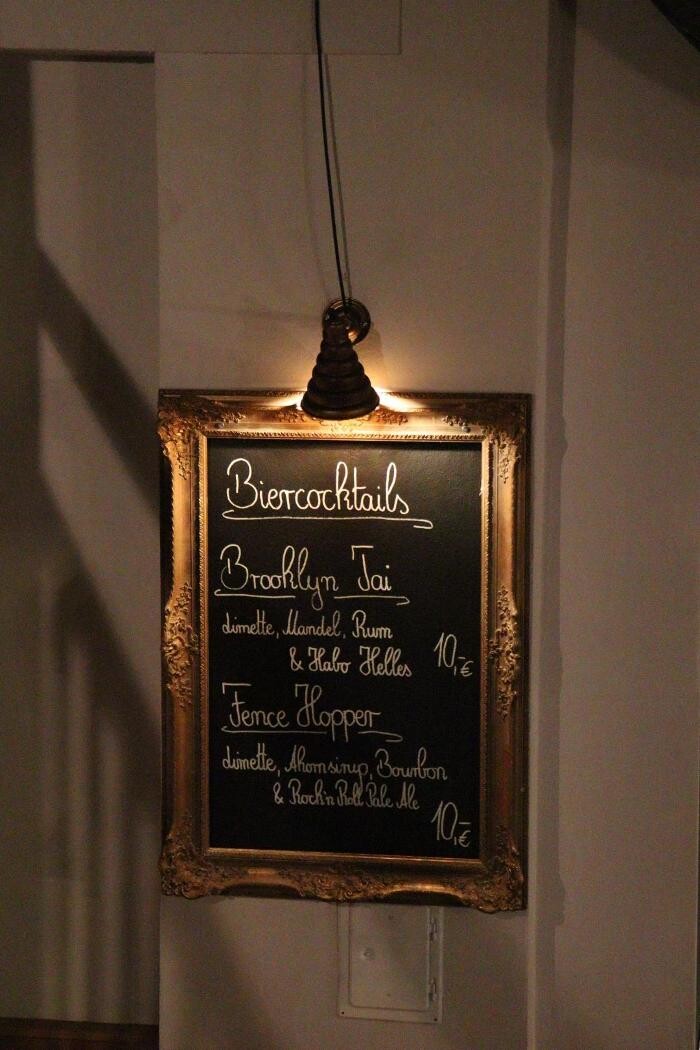 Biercocktails
Brooklyn Tai
Limette, Mandel, Rum
& Habo Helles
10,-€
Fence Hopper
Limette, Ahornsirup, Bourbon
& Rock'n Roll Pale Ale
10,-€